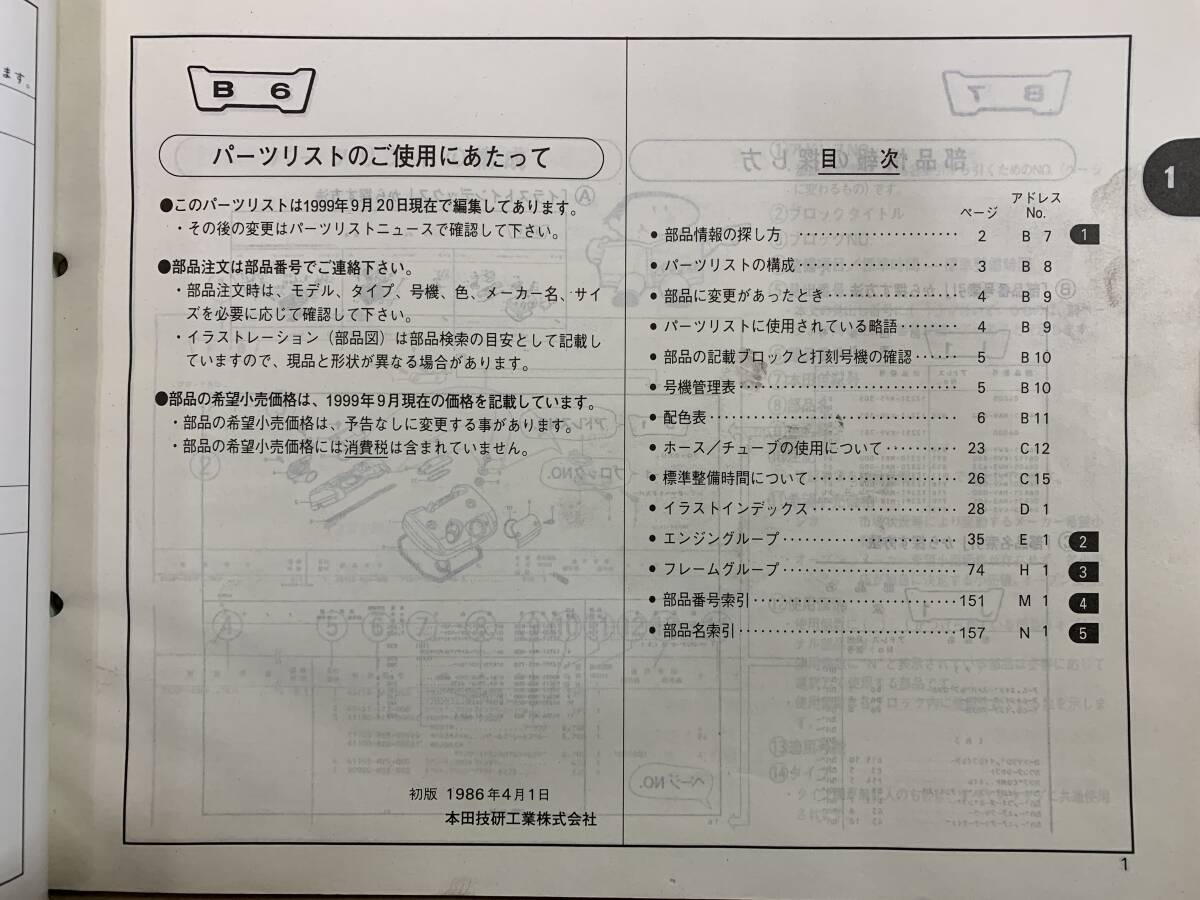 ます。
B 6
パーツリストのご使用にあたって
●このパーツリストは1999年9月20日現在で編集してあります。
・その後の変更はパーツリストニュースで確認して下さい。
●部品注文は部品番号でご連絡下さい。
・部品注文時は、モデル、タイプ、号機、色、メーカー名、サイ
ズを必要に応じて確認して下さい。
・イラストレーション（部品図）は部品検索の目安として記載し
ていますので、現品と形状が異なる場合があります。
●部品の希望小売価格は、1999年9月現在の価格を記載しています。
・部品の希望小売価格は、予告なしに変更する事があります。
・部品の希望小売価格には消費税は含まれていません。
初版 1986年4月1日
本田技研工業株式会社
目 次
ページ アドレスNo.
• 部品情報の探し方 ························ 2 B 7 1
• パーツリストの構成 ························ 3 B 8
• 部品に変更があったとき ···················· 4 B 9
• パーツリストに使用されている略語 ········ 4 B 9
• 部品の記載ブロックと打刻号機の確認 ······ 5 B 10
• 号機管理表 ································ 5 B 10
• 配色表 ···································· 6 B 11
• ホース／チューブの使用について ·········· 23 C 12
• 標準整備時間について ···················· 26 C 15
• イラストインデックス ···················· 28 D 1
• エンジングループ ························ 35 E 1 2
• フレームグループ ························ 74 H 1 3
• 部品番号索引 ···························· 151 M 1 4
• 部品名索引 ······························ 157 N 1 5
1
1